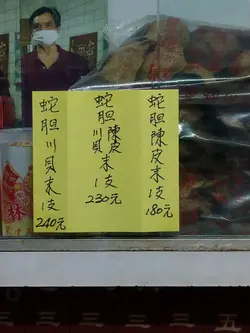 蛇胆陳皮末1支
180元
蛇胆陳皮川貝末1支
230元
蛇胆川貝末1支
240元
三
三
五